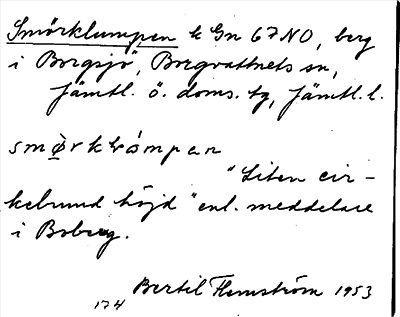 Smörklumpen k Gn 67 NO, berg
i Borgsjö, Borgvattnets sn,
Jämtl. ö. doms. tg, Jämtl. l.
"Liten cir-
kelrund höjd" enl. meddelare
i Boberg.
Bertil Flemström 1953
174